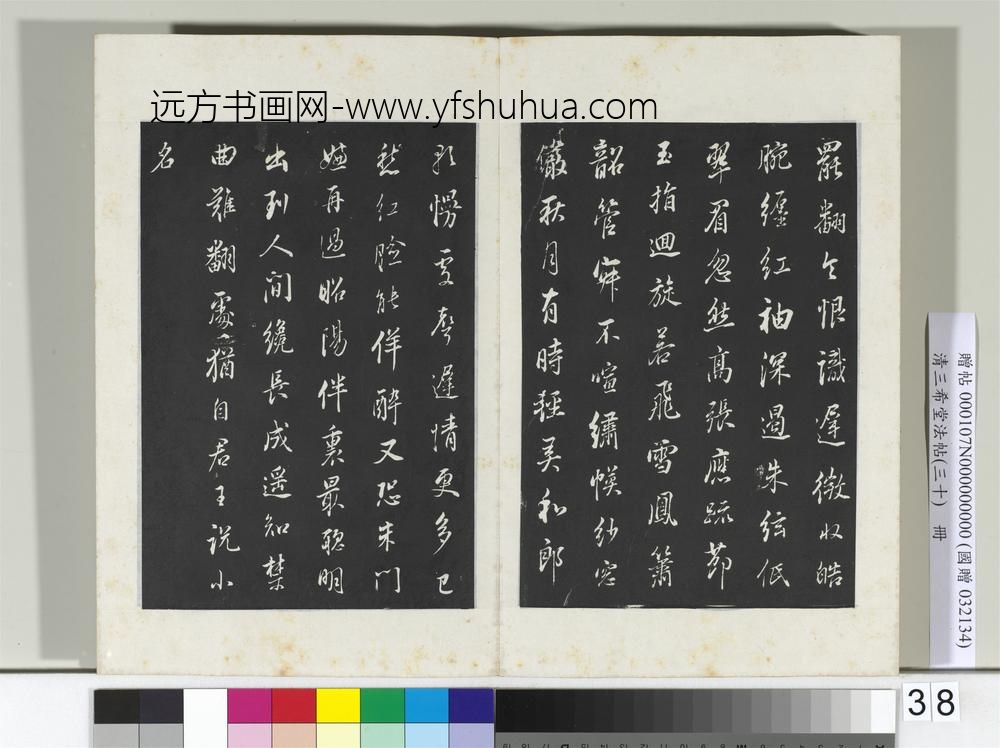 远方书画网-www.yfshuhua.com
罷翻令恨識遲徵收皓
腕纏紅袖深遏朱弦低
翠眉忽然高張應疏節
玉指迴旋若飛雪鳳簫
韶管寂不喧繡幙紗窓
儼秋月有時輕美和郎
歌慢處聲遲情更多已
愁紅臉能佯醉又恐朱門
再過昭陽伴裏最聰明
出到人間纔長成遥知禁
曲難翻處猶自君王説小
名
贈帖 000107N000000000 (國贈 032134)
清三希堂法帖(三十) 冊
38